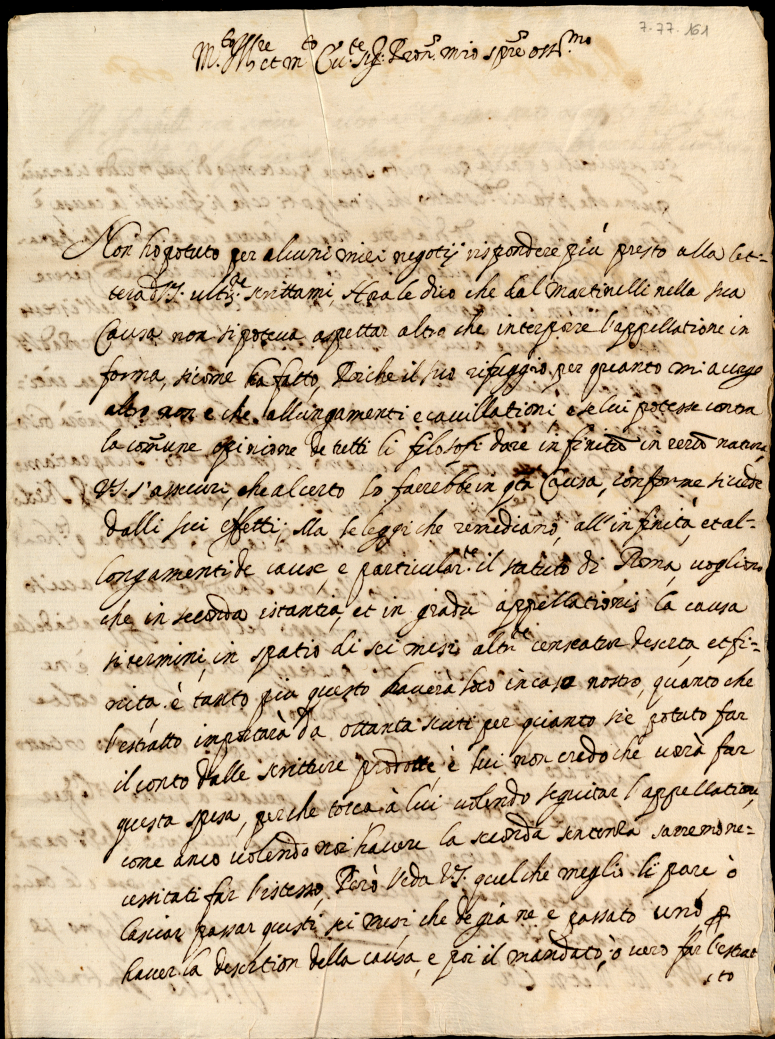 7.77. 161
M.to Ill.re et m.to Ecc.te Sig.r Pron. mio s.pre oss.mo
Non ho potuto per alcuni miei negotij rispondere più presto alla let-
tera di V.S. ult.te scrittami, Hora le dico che dal Martinelli nella sua
Causa non si poteva aspettar altro che interporre l'appellatione in
forma, sicome ha fatto, Poiche il suo rifuggio per quanto mi accorgo
altro non e che allungamenti e cavillationi, e se lui potesse contra
la comune opinione de tutti li filosofi dare infinitũ in rerũ natura,
V.S. s'assicuri, che al certo lo farebbe in q.ta Causa, conforme si vede
dalli sui effetti; Ma le leggi che remediano, all'infinità, et al-
longamenti de cause, e particular.te il statuto di Roma, vogliono
che in seconda istantia, et in gradu appellationis la causa
si termini, in spatio di sei mesi altr.te censeatur deserta, et fi-
nita. è tanto piu questo haverà loco in caso nostro, quanto che
l'estratto importarà da ottanta scuti per quanto si è potuto far
il conto dalle scritture prodotte, è lui non credo che vorà far
questa spesa, perche tocca à lui volendo seguitar l'appellatione,
come anco volendo noi havere la seconda sentenza saremo ne-
cessitati far l'istesso, Però veda V.S. quel che meglio li pare, ò
lasciar passar questi sei mesi che de già ne e passato uno p
haver la desertion della causa, e poi il mandato, ò vero far l'estrat
to